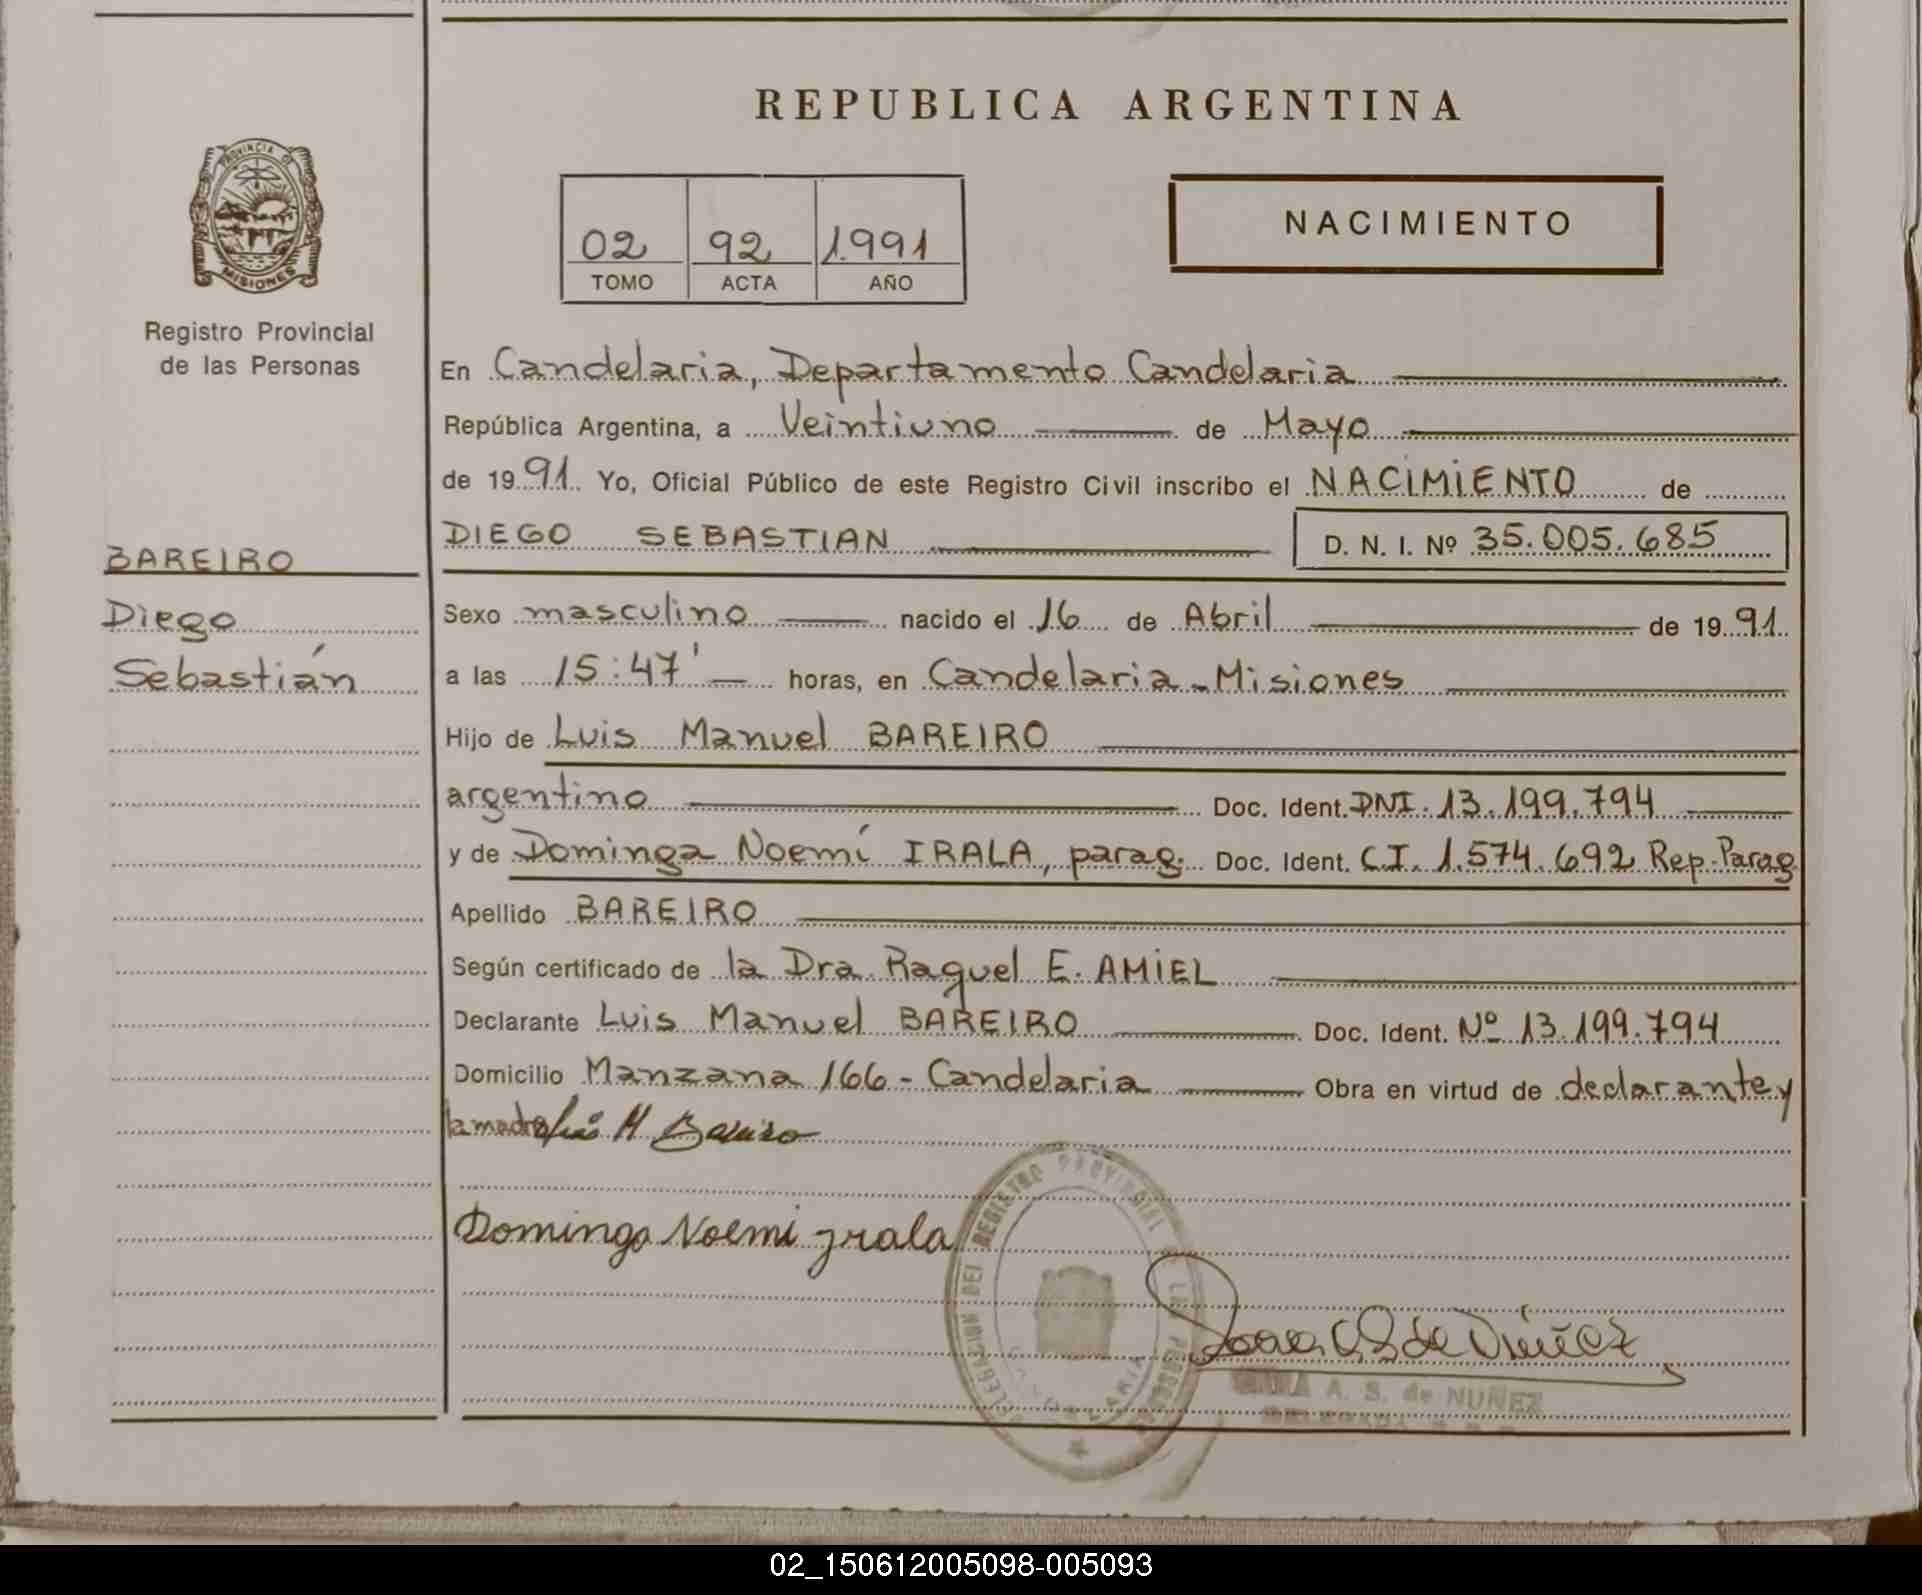 REPUBLICA ARGENTINA
PROVINCIA DE
MISIONES
Registro Provincial
de las Personas
02 92 1.991
TOMO ACTA AÑO
NACIMIENTO
En Candelaria, Departamento Candelaria
República Argentina, a Veintiuno de Mayo
de 1991. Yo, Oficial Público de este Registro Civil inscribo el NACIMIENTO de
BAREIRO
DIEGO SEBASTIAN D. N. I. Nº 35.005.685
Diego
Sebastián
Sexo masculino nacido el 16 de Abril de 1991.
a las 15:47' horas, en Candelaria - Misiones
Hijo de Luis Manuel BAREIRO
argentino Doc. Ident. DNI. 13.199.794
y de Dominga Noemí IRALA, parag. Doc. Ident. C.I. 1.574.692 Rep. Parag
Apellido BAREIRO
Según certificado de la Dra Raquel E. AMIEL
Declarante Luis Manuel BAREIRO Doc. Ident. Nº 13.199.794
Domicilio Manzana 166 - Candelaria Obra en virtud de declarante y
la madre Luis M Bareiro
Dominga Noemi Irala
DELEGACION DEL REGISTRO PROVINCIAL DE LAS PERSONAS
CANDELARIA
A. S. de Núñez
A. S. de NUÑEZ
DELEGADA
02_150612005098-005093